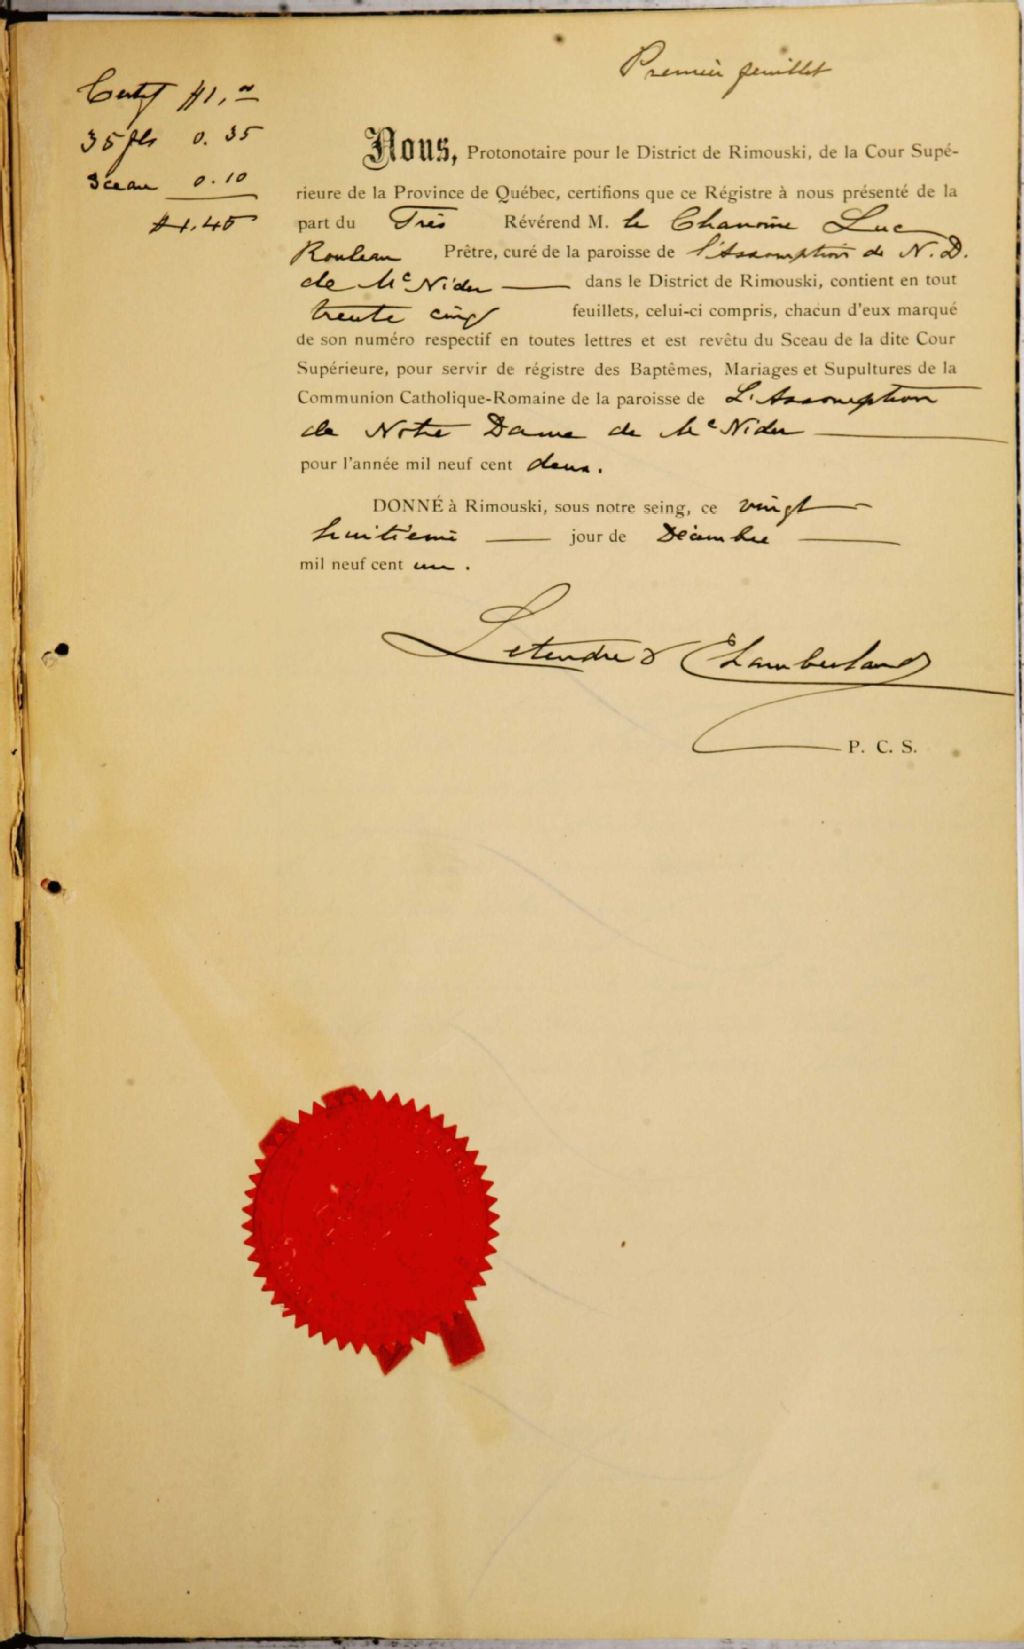 Premier feuillet
Certif $1,00
35 fls 0.35
Sceau 0.10
$1.45
Nous, Protonotaire pour le District de Rimouski, de la Cour Supé-
rieure de la Province de Québec, certifions que ce Régistre à nous présenté de la
part du Très Révérend M. le Chanoine Luc
Rouleau Prêtre, curé de la paroisse de l'Assomption de N. D.
de McNider dans le District de Rimouski, contient en tout
trente cinq feuillets, celui-ci compris, chacun d'eux marqué
de son numéro respectif en toutes lettres et est revêtu du Sceau de la dite Cour
Supérieure, pour servir de régistre des Baptêmes, Mariages et Supultures de la
Communion Catholique-Romaine de la paroisse de L'Assomption
de Notre Dame de McNider
pour l'année mil neuf cent deux.
DONNÉ à Rimouski, sous notre seing, ce vingt
huitième jour de Décembre
mil neuf cent un.
Letendre & Chamberland
P. C. S.